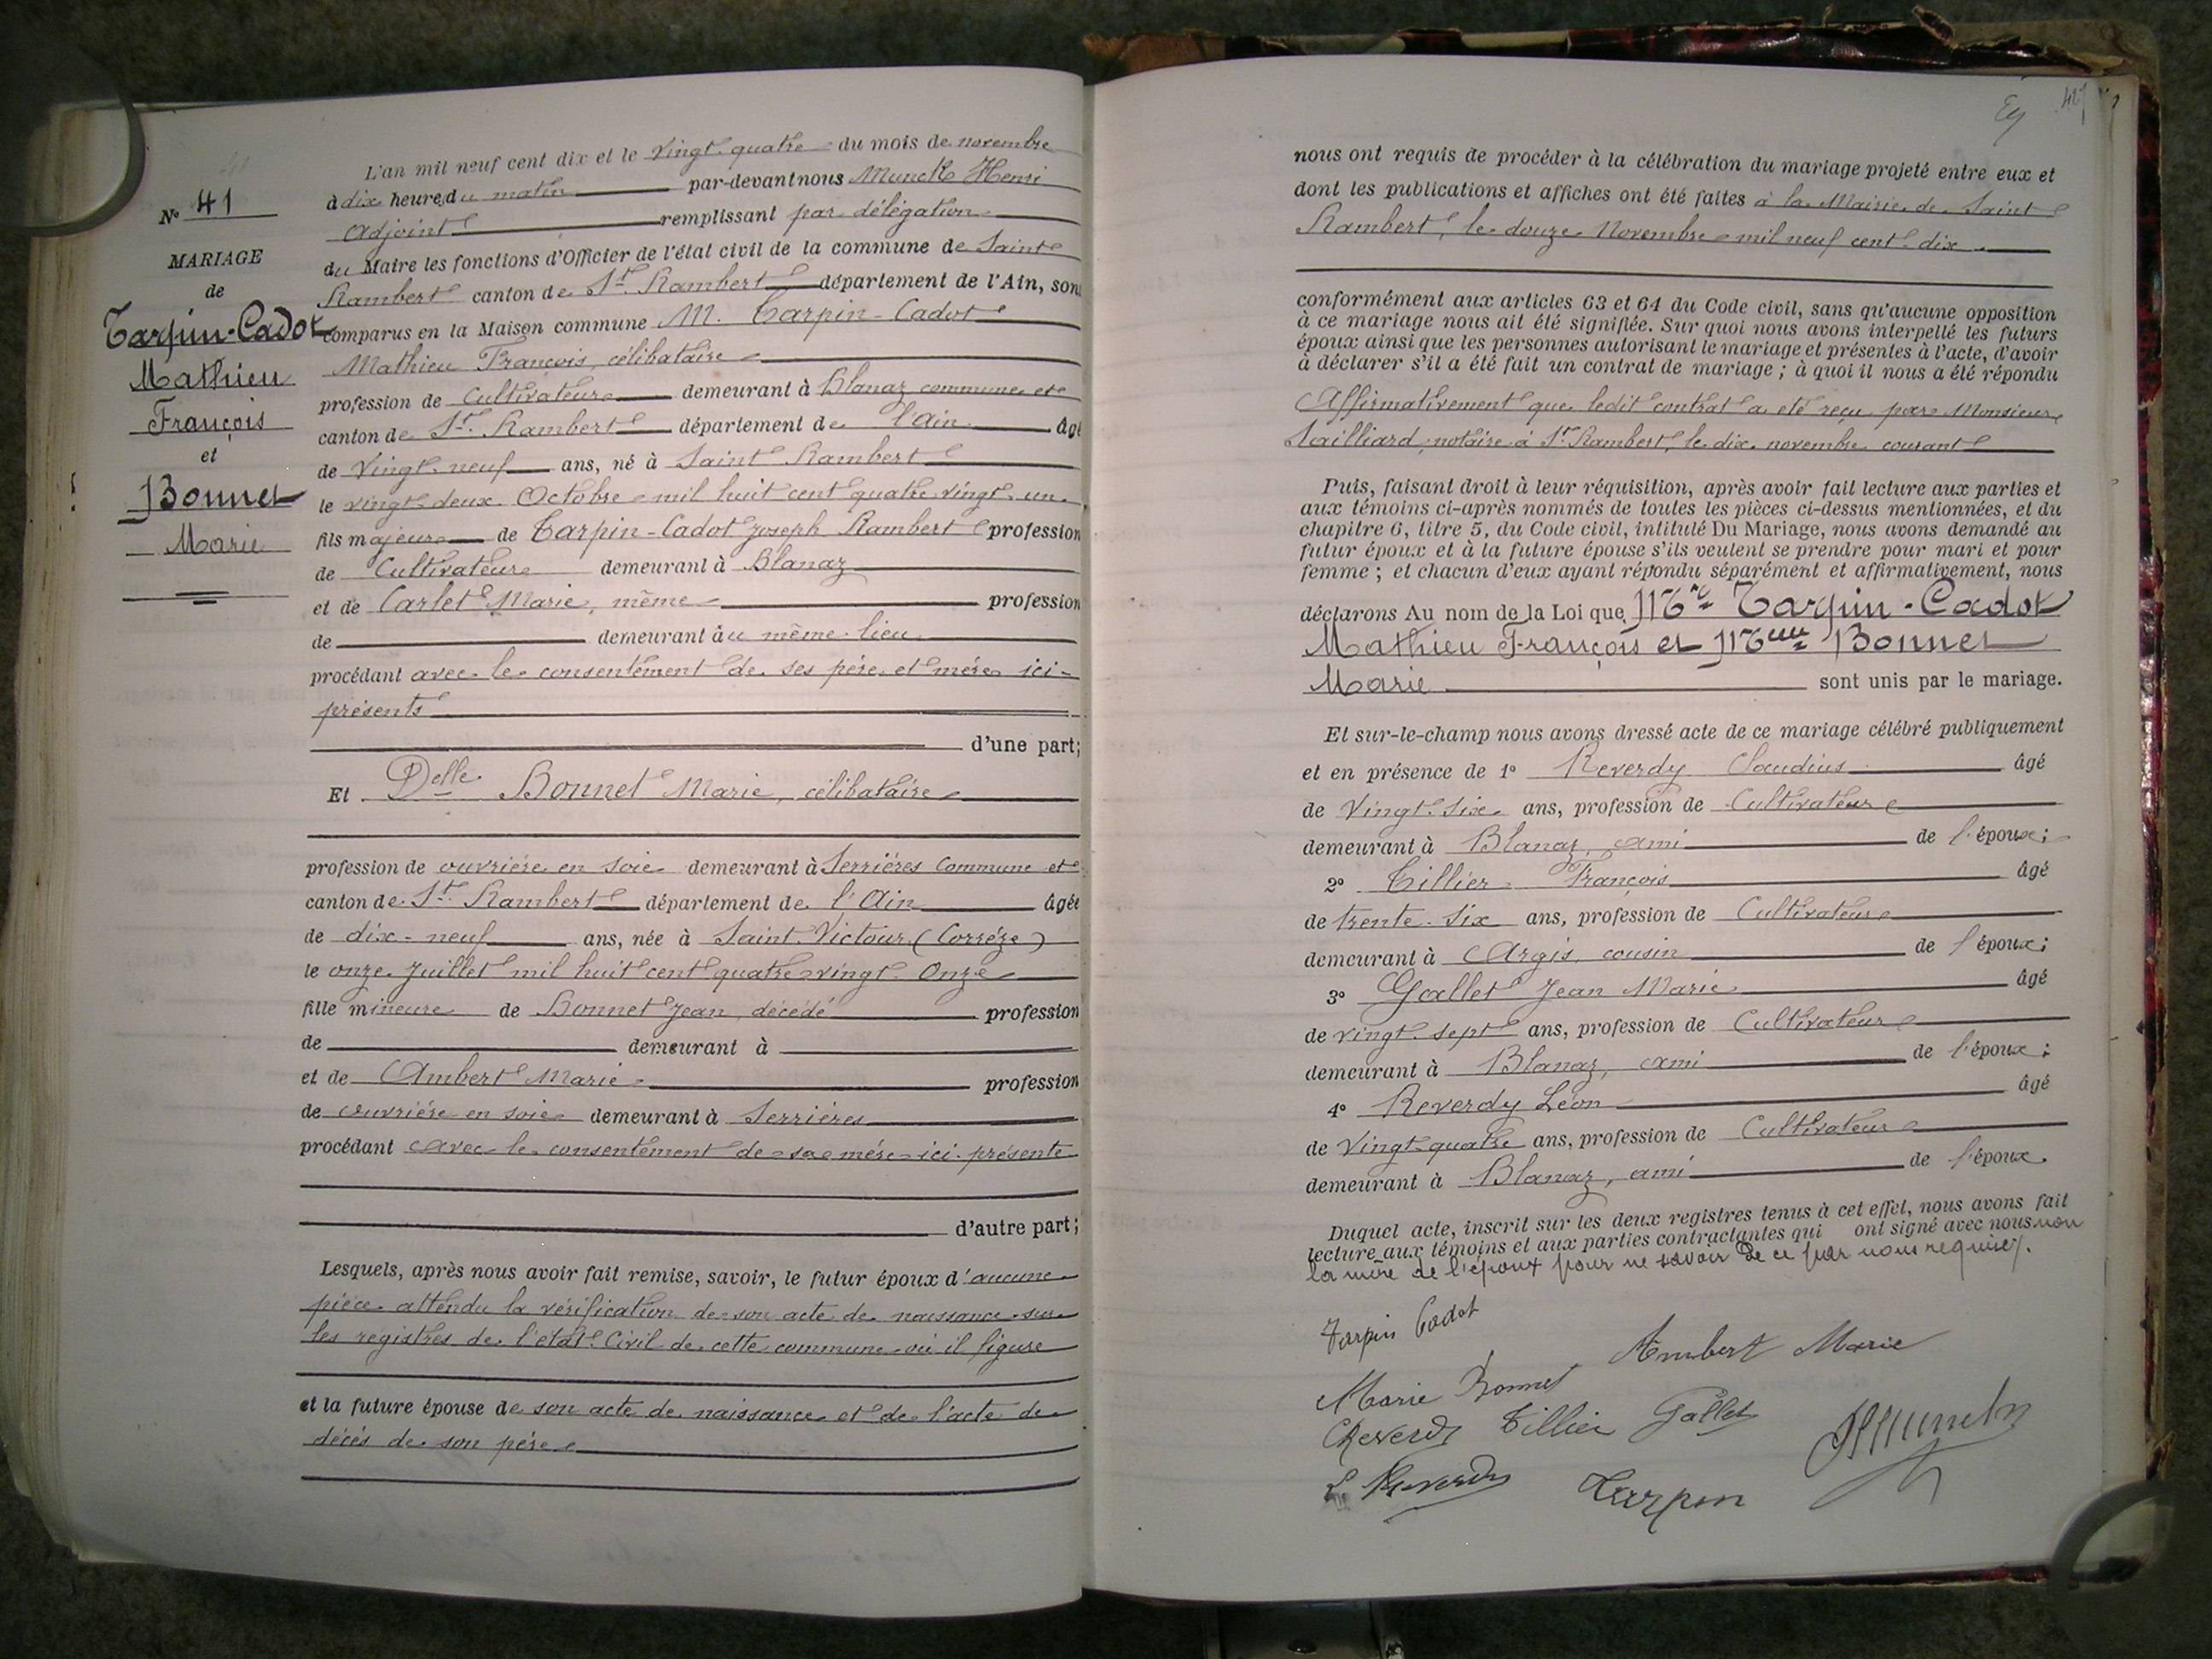 N° 41
MARIAGE
de
Tarpin-Cadot
Mathieu
François
et
Bonnet
Marie
L'an mil neuf cent dix et le vingt-quatre du mois de novembre
à dix heure du matin par-devant nous Munck Henri
adjoint remplissant par délégation
du Maire les fonctions d'Officier de l'état civil de la commune de Saint
Rambert canton de St. Rambert département de l'Ain, son
comparus en la Maison commune M. Tarpin-Cadot
Mathieu François, célibataire
profession de Cultivateur demeurant à Blanaz commune et
canton de St. Rambert département de l'Ain âgé
de vingt-neuf ans, né à Saint Rambert
le vingt-deux Octobre mil huit cent quatre vingt-un
fils majeur de Tarpin-Cadot Joseph Rambert profession
de Cultivateur demeurant à Blanaz
et de Carlet Marie, même profession
de demeurant au même lieu
procédant avec le consentement de ses père et mère ici-
présents
d'une part;
Et Delle Bonnet Marie, célibataire
profession de ouvrière en soie demeurant à Serrières Commune et
canton de St. Rambert département de l'Ain âgée
de dix-neuf ans, née à Saint-Victour (Corrèze)
le onze Juillet mil huit cent quatre-vingt-Onze
fille mineure de Bonnet Jean décédé profession
de demeurant à
et de Ambert Marie profession
de ouvrière en soie demeurant à Serrières
procédant avec le consentement de sa mère ici-présente
d'autre part;
Lesquels, après nous avoir fait remise, savoir, le futur époux d'aucune
pièce attendu la vérification de son acte de naissance sur
les registres de l'état-Civil de cette commune où il figure
et la future épouse de son acte de naissance et de l'acte de
décès de son père
nous ont requis de procéder à la célébration du mariage projeté entre eux et
dont les publications et affiches ont été faites à la Mairie de Saint
Rambert, le douze Novembre mil neuf cent dix
conformément aux articles 63 et 64 du Code civil, sans qu'aucune opposition
à ce mariage nous ait été signifiée. Sur quoi nous avons interpellé les futurs
époux ainsi que les personnes autorisant le mariage et présentes à l'acte, d'avoir
à déclarer s'il a été fait un contrat de mariage; à quoi il nous a été répondu
Affirmativement que ledit contrat a été reçu par Monsieur
Sailliard, notaire à St. Rambert, le dix novembre courant
Puis, faisant droit à leur réquisition, après avoir fait lecture aux parties et
aux témoins ci-après nommés de toutes les pièces ci-dessus mentionnées, et du
chapitre 6, titre 5, du Code civil, intitulé Du Mariage, nous avons demandé au
futur époux et à la future épouse s'ils veulent se prendre pour mari et pour
femme; et chacun d'eux ayant répondu séparément et affirmativement, nous
déclarons Au nom de la Loi que Mr Tarpin-Cadot
Mathieu François et Melle Bonnet
Marie sont unis par le mariage.
Et sur-le-champ nous avons dressé acte de ce mariage célébré publiquement
et en présence de 1° Reverdy Claudius âgé
de Vingt-Six ans, profession de Cultivateur
demeurant à Blanaz, ami de l'époux;
2° Tillier François âgé
de trente-six ans, profession de Cultivateur
demeurant à Argis, cousin de l'époux;
3° Gallet Jean Marie âgé
de vingt-sept ans, profession de Cultivateur
demeurant à Blanaz, ami de l'époux;
4° Reverdy Léon âgé
de Vingt-quatre ans, profession de Cultivateur
demeurant à Blanaz, ami de l'époux.
Duquel acte, inscrit sur les deux registres tenus à cet effet, nous avons fait
lecture aux témoins et aux parties contractantes qui ont signé avec nous non
la mère de l'époux pour ne savoir de ce par nous requise.
Tarpin Cadot
Ambert Marie
Marie Bonnet
C Reverdy Tillier Gallet
H Munck
L. Reverdy
Tarpin